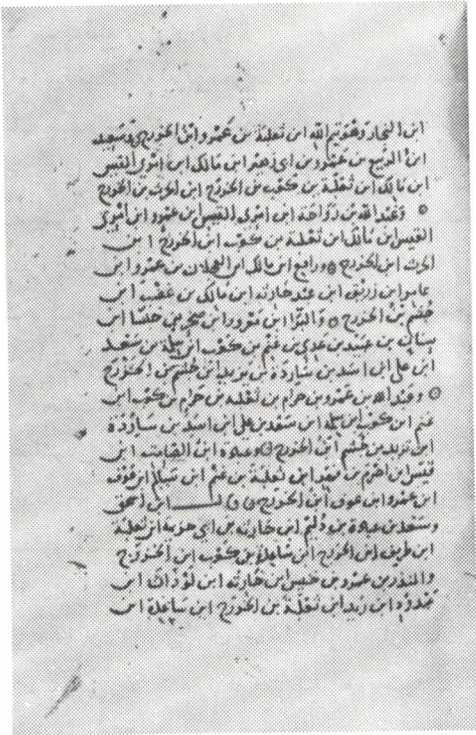 ابن النجار وهو تيم الله ابن ثعلبة بن عمرو ابن الخزرج وسعد
ابن الربيع بن عمرو بن ابي زهير ابن مالك ابن امرى القيس
ابن مالك ابن ثعلبة بن كعب بن الخزرج ابن الحرث بن الخزرج
وعبد الله بن رواحة ابن امرى القيس ابن عمرو ابن امرى
القيس ابن مالك ابن ثعلبة بن كعب ابن الخزرج ابن
الحرث ابن الخزرج ورافع ابن مالك ابن العجلان بن عمرو ابن
عامر ابن زريق ابن عبد حارثه ابن مالك بن غضب ابن
جشم بن الخزرج والبرا ابن معرور ابن صخر بن خنسا ابن
سنان بن عبيد بن عدي بن غنم بن كعب ابن سلمة بن سعد
ابن على ابن اسد بن ساردة بن تزيد ابن جشم بن الخزرج
وعبد الله بن عمرو بن حرام بن ثعلبه بن حرام بن كعب ابن
غنم ابن كعب ابن سلمه ابن سعد بن على ابن اسد بن ساردة
ابن تزيد بن جشم ابن الخزرج وعبادة ابن الصامت ابن
قيس ابن اصرم بن فهر ابن ثعلبة بن غنم ابن سالم ابن عوف
ابن عمرو ابن عوف ابن الخزرج قال ابن اسحق
وسعد بن عبادة بن دليم ابن حارثة بن ابي حزيمة ابن ثعلبة
ابن طريف ابن الخزرج ابن ساعدة بن كعب ابن الخزرج
والمنذر بن عمرو بن خنيس ابن حارثه ابن لوذان ابن
عبدود ابن زيد ابن ثعلبة بن الخزرج ابن ساعدة ابن